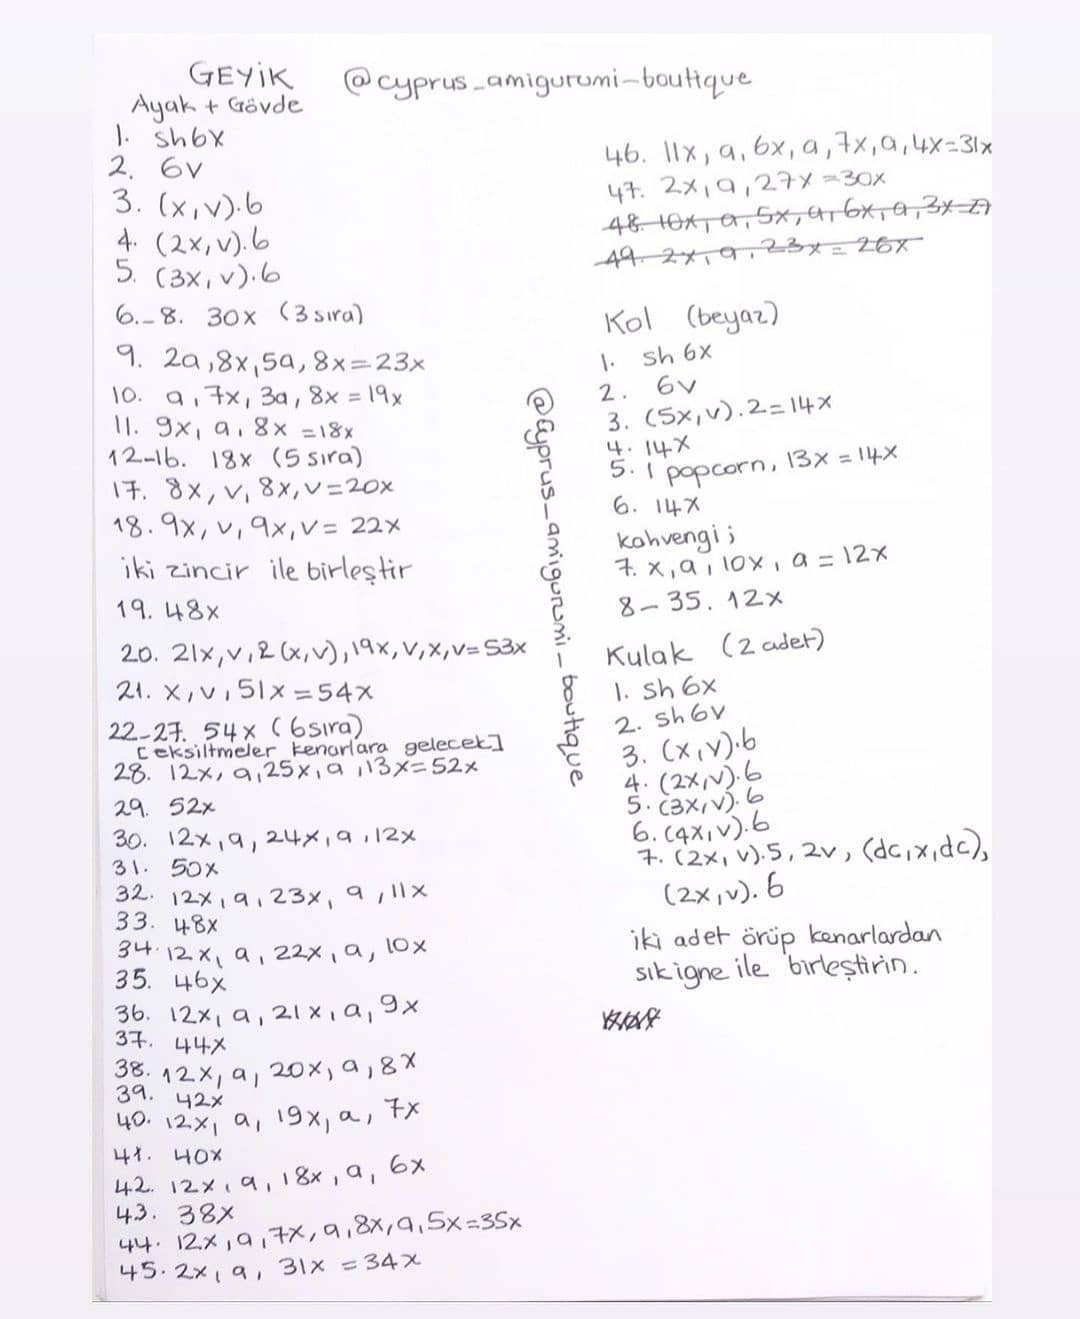 GEYİK @cyprus_amigurumi-boutique
Ayak + Gövde
1. sh6x
2. 6v
3. (x,v).6
4. (2x,v).6
5. (3x,v).6
6.-8. 30x (3 sıra)
9. 2a,8x,5a,8x=23x
10. a,7x,3a,8x=19x
11. 9x,a,8x=18x
12-16. 18x (5 sıra)
17. 8x,v,8x,v=20x
18. 9x,v,9x,v=22x
iki zincir ile birleştir
19. 48x
20. 21x,v,2(x,v),19x,v,x,v=53x
21. x,v,51x=54x
22-27. 54x (6sıra)
[eksiltmeler kenarlara gelecek]
28. 12x,a,25x,a,13x=52x
29. 52x
30. 12x,a,24x,a,12x
31. 50x
32. 12x,a,23x,a,11x
33. 48x
34. 12x,a,22x,a,10x
35. 46x
36. 12x,a,21x,a,9x
37. 44x
38. 12x,a,20x,a,8x
39. 42x
40. 12x,a,19x,a,7x
41. 40x
42. 12x,a,18x,a,6x
43. 38x
44. 12x,a,7x,a,8x,a,5x=35x
45. 2x,a,31x=34x
@cyprus_amigurumi-boutique
46. 11x,a,6x,a,7x,a,4x=31x
47. 2x,a,27x=30x
48. 10x,a,5x,a,6x,a,3x=27
49. 2x,a,23x=26x
Kol (beyaz)
1. sh 6x
2. 6v
3. (5x,v).2=14x
4. 14x
5. 1 popcorn, 13x=14x
6. 14x
kahvengi;
7. x,a,10x,a=12x
8-35. 12x
Kulak (2 adet)
1. sh 6x
2. sh6v
3. (x,v).6
4. (2x,v).6
5. (3x,v).6
6. (4x,v).6
7. (2x,v).5, 2v, (dc,x,dc),
(2x,v).6
iki adet örüp kenarlardan
sık igne ile birleştirin.